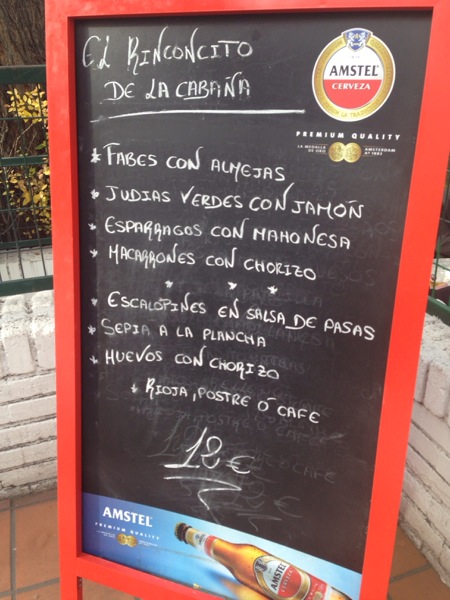 EL RINCONCITO
DE LA CABAÑA
AMSTEL
CERVEZA
PREMIUM QUALITY
LA MEDALLA DE ORO
AMSTERDAM Aº 1883
* FABES CON ALMEJAS
* JUDIAS VERDES CON JAMÓN
* ESPARRAGOS CON MAHONESA
* MACARRONES CON CHORIZO
* * *
* ESCALOPINES EN SALSA DE PASAS
* SEPIA A LA PLANCHA
* HUEVOS CON CHORIZO
* RIOJA, POSTRE Ó CAFE
12 €
AMSTEL
PREMIUM QUALITY
AMSTEL
CERVEZA